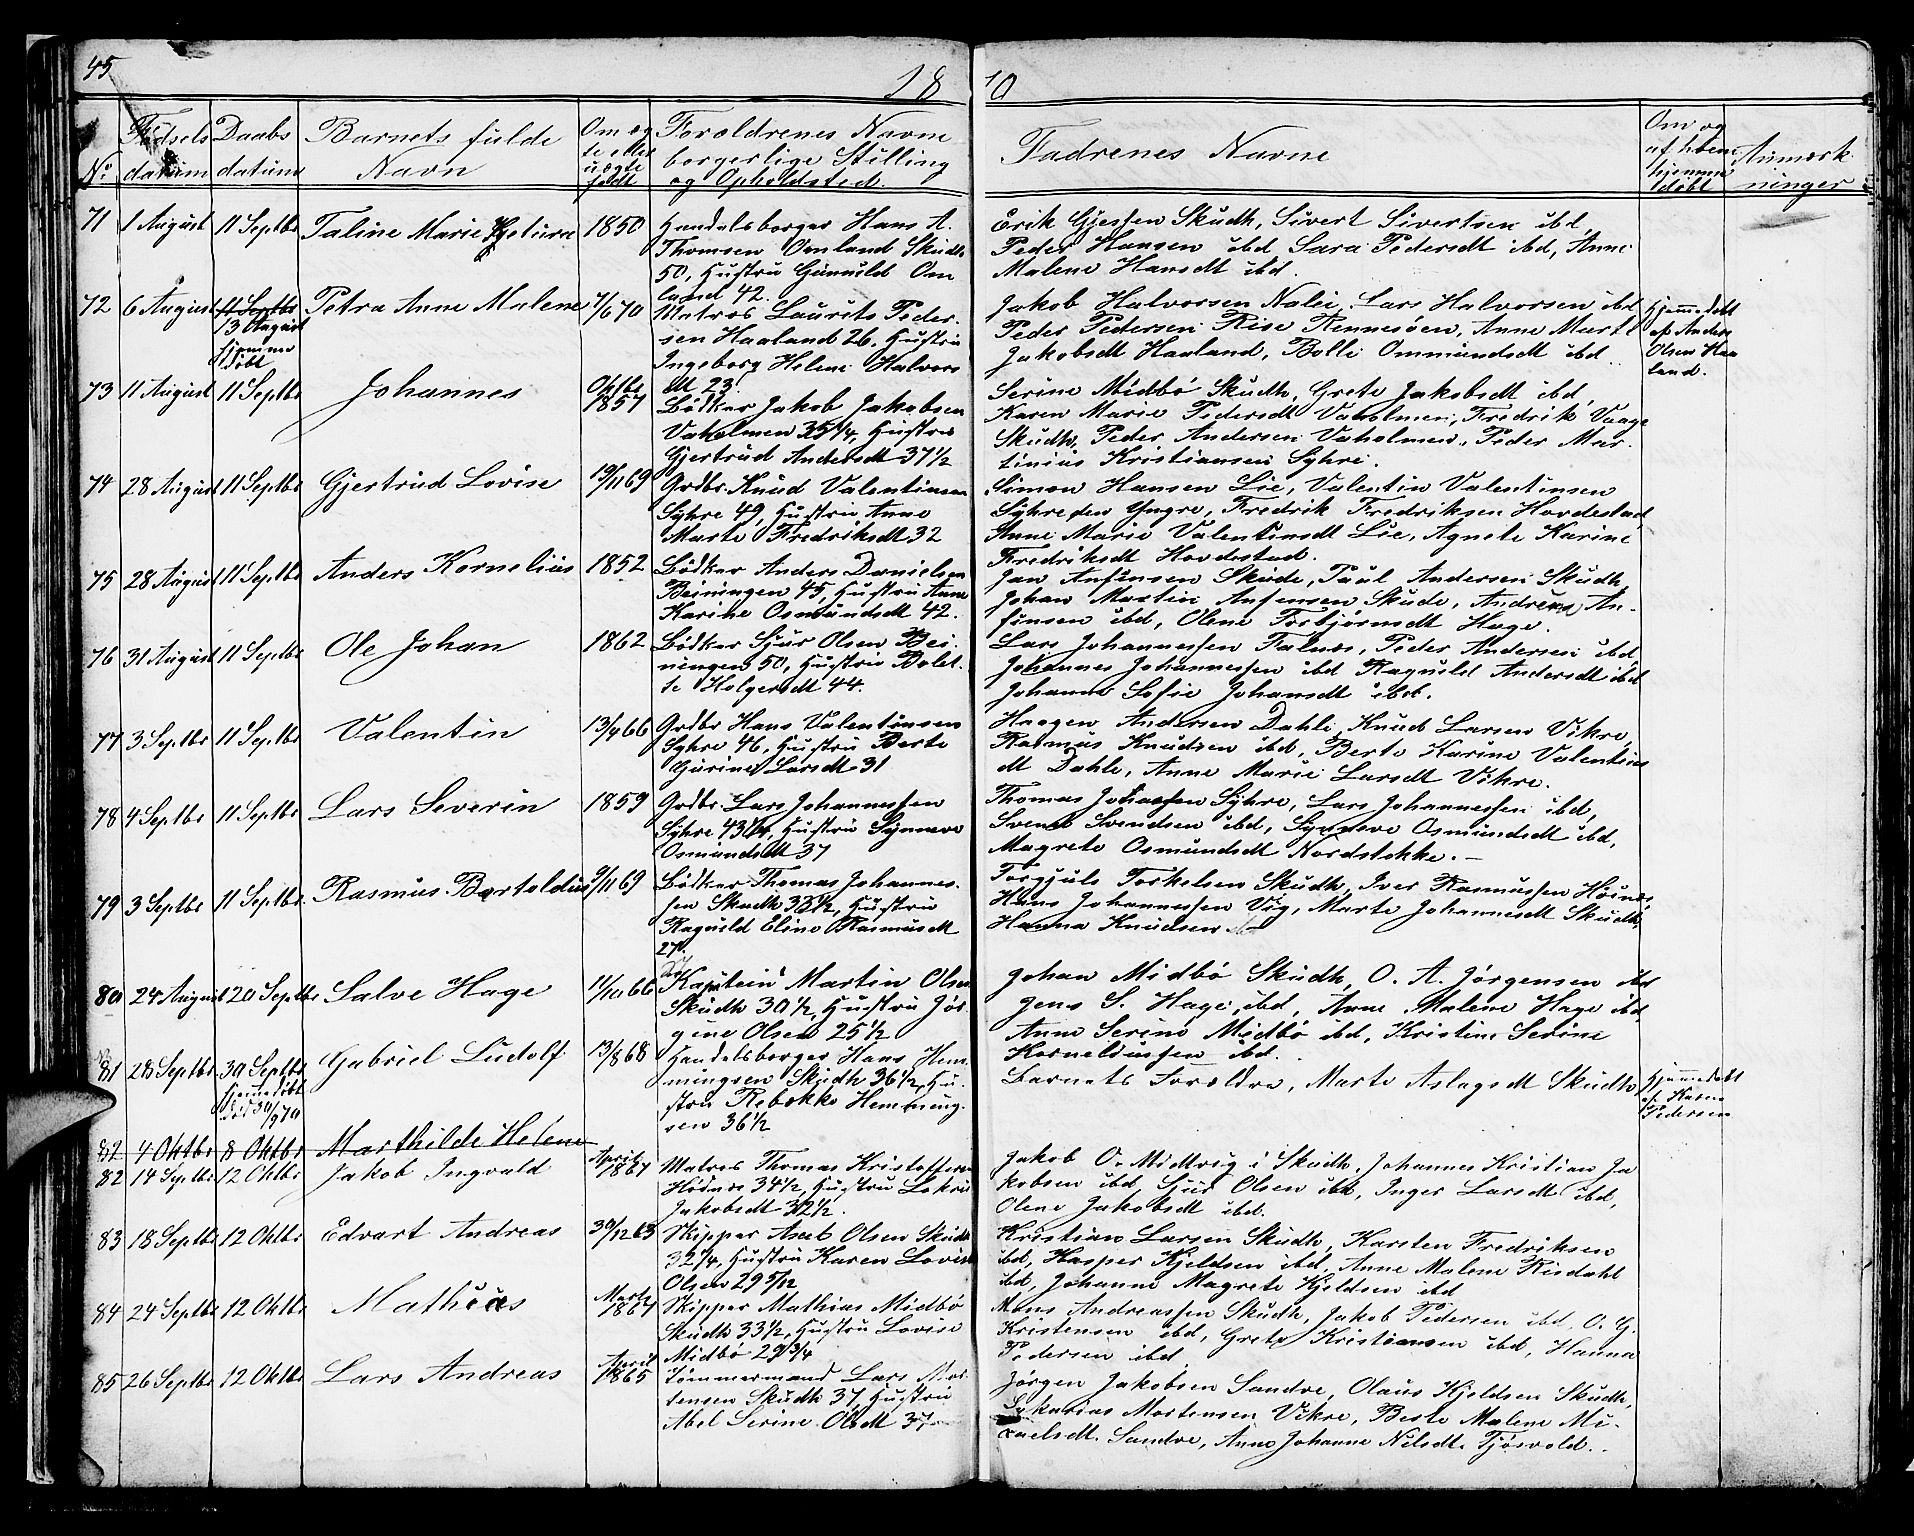 45
18 70
No
Fødsels datum
Daabs datum
Barnets fulde Navn
Om ægte eller uægte født
Forældrenes Navne borgerlige Stilling og Opholdsted.
Fadrenes Navne
Om og af hvem hjemmedøbt
Anmærkninger
71 1 August 11 Septbr Taline Marie 1850 Handelsborger Hans A.
Thomsen Omland Skudh.
50, Hustru Gunnild Om
land 42.
Erik Gjessen Skudh, Sivert Sivertsen ibd,
Peder Hansen ibd, Sara Pedersdt ibd, Anne
Malene Hansdt ibd.
72 6 August 11 Septbr Petra Anne Malene 7/6 70 Matros Laurits Peder-
13 August
hjemmedøbt
sen Haaland 26, Hustru
Ingeborg Helene Halvors
dt 23
Jakob Halvorsen Nalei, Lars Halvorsen ibd
Peder Pedersen Rise Rennesøen, Anne Marte
Jakobsdt Haaland, Bolli Ommundsdt ibd.
hjemmedøbt
af Anders
Olsen Haa
land.
73 11 August 11 Septbr Johannes Oktbr 1857 Bødker Jakob Jakobsen
Vaholmen 35 1/4, Hustru
Gjertrud Andersdt 37 1/2
Serine Midbø Skudh, Grete Jakobsdt ibd,
Karen Marie Pedersdt Vaholmen, Fredrik Vaage
Skudh, Peder Andersen Vaholmen, Peder Mar-
tinius Kristiansen Syhre.
74 28 August 11 Septbr Gjertrud Lovise 19/11 69 Grdbr. Knud Valentinsen
Syhre 49, Hustru Anne
Marte Fredriksdt 32
Simon Hansen Lie, Valentin Valentinsen
Syhre den Yngre, Fredrik Fredriksen Hovdestad,
Anne Marie Valentinsdt Lie, Agnete Karine
Fredriksdt Hovdestad.
75 28 August 11 Septbr Anders Kornelius 1852 Bødker Anders Danielsen
Beiningen 45, Hustru Anne
Karine Osmundsdt 42.
Jan Anfinsen Skude, Paul Andersen Skudh,
Johan Martin Anfinsen Skude, Andreas An-
finsen ibd, Olene Torbjørnsdt Hage.
76 31 August 11 Septbr Ole Johan 1862 Bødker Sjur Olsen Bei-
ningen 50, Hustru Bolet-
te Holgersdt 44.
Lars Johannessen Falnes, Peder Andersen ibd,
Johannes Johannessen ibd Raguild Andersdt ibd
Johanne Sofie Johansdt ibd.
77 3 Septbr 11 Septbr Valentin 13/4 66 Grdbr Hans Valentinsen
Syhre 46, Hustru Berte
Gurine Larsdt 31
Haagen Andersen Dahle, Knud Larsen Vikre,
Rasmus Knudsen ibd, Berte Karine Valentins
dt Dahle, Anne Marie Larsdt Vikre.
78 4 Septbr 11 Septbr Lars Severin 1859 Grdbr. Lars Johannessen
Syhre 43, Hustru Synneve
Osmundsdt 37
Thomas Johnessen Syhre, Lars Johannessen ibd,
Svend Svendsen ibd, Synneve Osmundsdt ibd,
Magrete Osmundsdt Nordstokke. -
79 3 Septbr 11 Septbr. Rasmus Bertoldus 9/11 69 Bødker Thomas Johannes-
sen Skudh 38 1/2, Hustru
Raguild Eline Rasmusdt
27.
Torgjuls Torkelsen Skudh, Iver Rasmussen Høines
Hans Johannessen Vig, Marte Johannesdt Skudh,
Hanna Knudsen
80 24 August 20 Septbr Salve Hage 11/10 66 Kaptein Martin Olsen
Skudh 30 1/2, Hustru Jør-
gine Olsen 25 1/2
Johan Midbø Skudh, O. A. Jørgensen ibd
Jens S. Hage, ibd, Anne Malene Hage ibd,
Anne Serine Midbø ibd, Kristine Serine
Korneliussen ibd.
81 28 Septbr 30 Septbr Gabriel Ludolf 13/8 68 Handelsborger Hans Hem-
hjemmedøbt
død 30/9 70
mingsen Skudh 36 1/2, Hu-
stru Rebekka Hemming-
sen 36 1/2
Barnets Forældre, Marte Aslagsdt Skudh,
hjemmedøbt
af Karen
Pedersen
82 4 Oktbr 8 Oktbr Marthilde Helene
82 14 Septbr 12 Oktbr Jakob Ingvald April 1867 Matros Thomas Kristoffersen
Høines 34 1/2, Hustru Lokris
Jakobsdt 32 1/2.
Jakob O. Midtvig i Skudh, Johannes Kristian Ja
kobsen ibd, Sjur Olsen ibd, Inger Larsdt ibd,
Olene Jakobsdt ibd.
83 18 Septbr 12 Oktbr Edvart Andreas 30/12 63 Skipper Aret Olsen Skudh
32 1/4, Hustru Karen Lovise
Olsen 29 5/12
Kristian Larsen Skudh, Karsten Fredriksen
ibd, Kasper Kjeldsen ibd, Anne Malene Risdahl
ibd, Johanne Magrete Kjeldsen ibd
84 24 Septbr 12 Oktbr Mathias Marts 1867 Skipper Mathias Midbø
Skudh 33 1/2, Hustru Lovise
Midbø 29 3/4
Mons Andreassen Skudh, Jakob Pedersen ibd, O. G.
Kristensen ibd, Grete Kristiansen ibd, Hanna
Pedersen ibd
85 26 Septbr 12 Oktbr Lars Andreas April 1865 Tømmermand Lars Mor-
tensen Skudh 37, Hustru
Abel Serine Olsdt 37
Jørgen Jakobsen Sandve, Olaus Kjeldsen Skudh,
Sakarias Mortensen Vikre, Berte Malene Mi-
kaelsdt. Sandve, Anne Johanne Nilsdt. Tjøsvold.